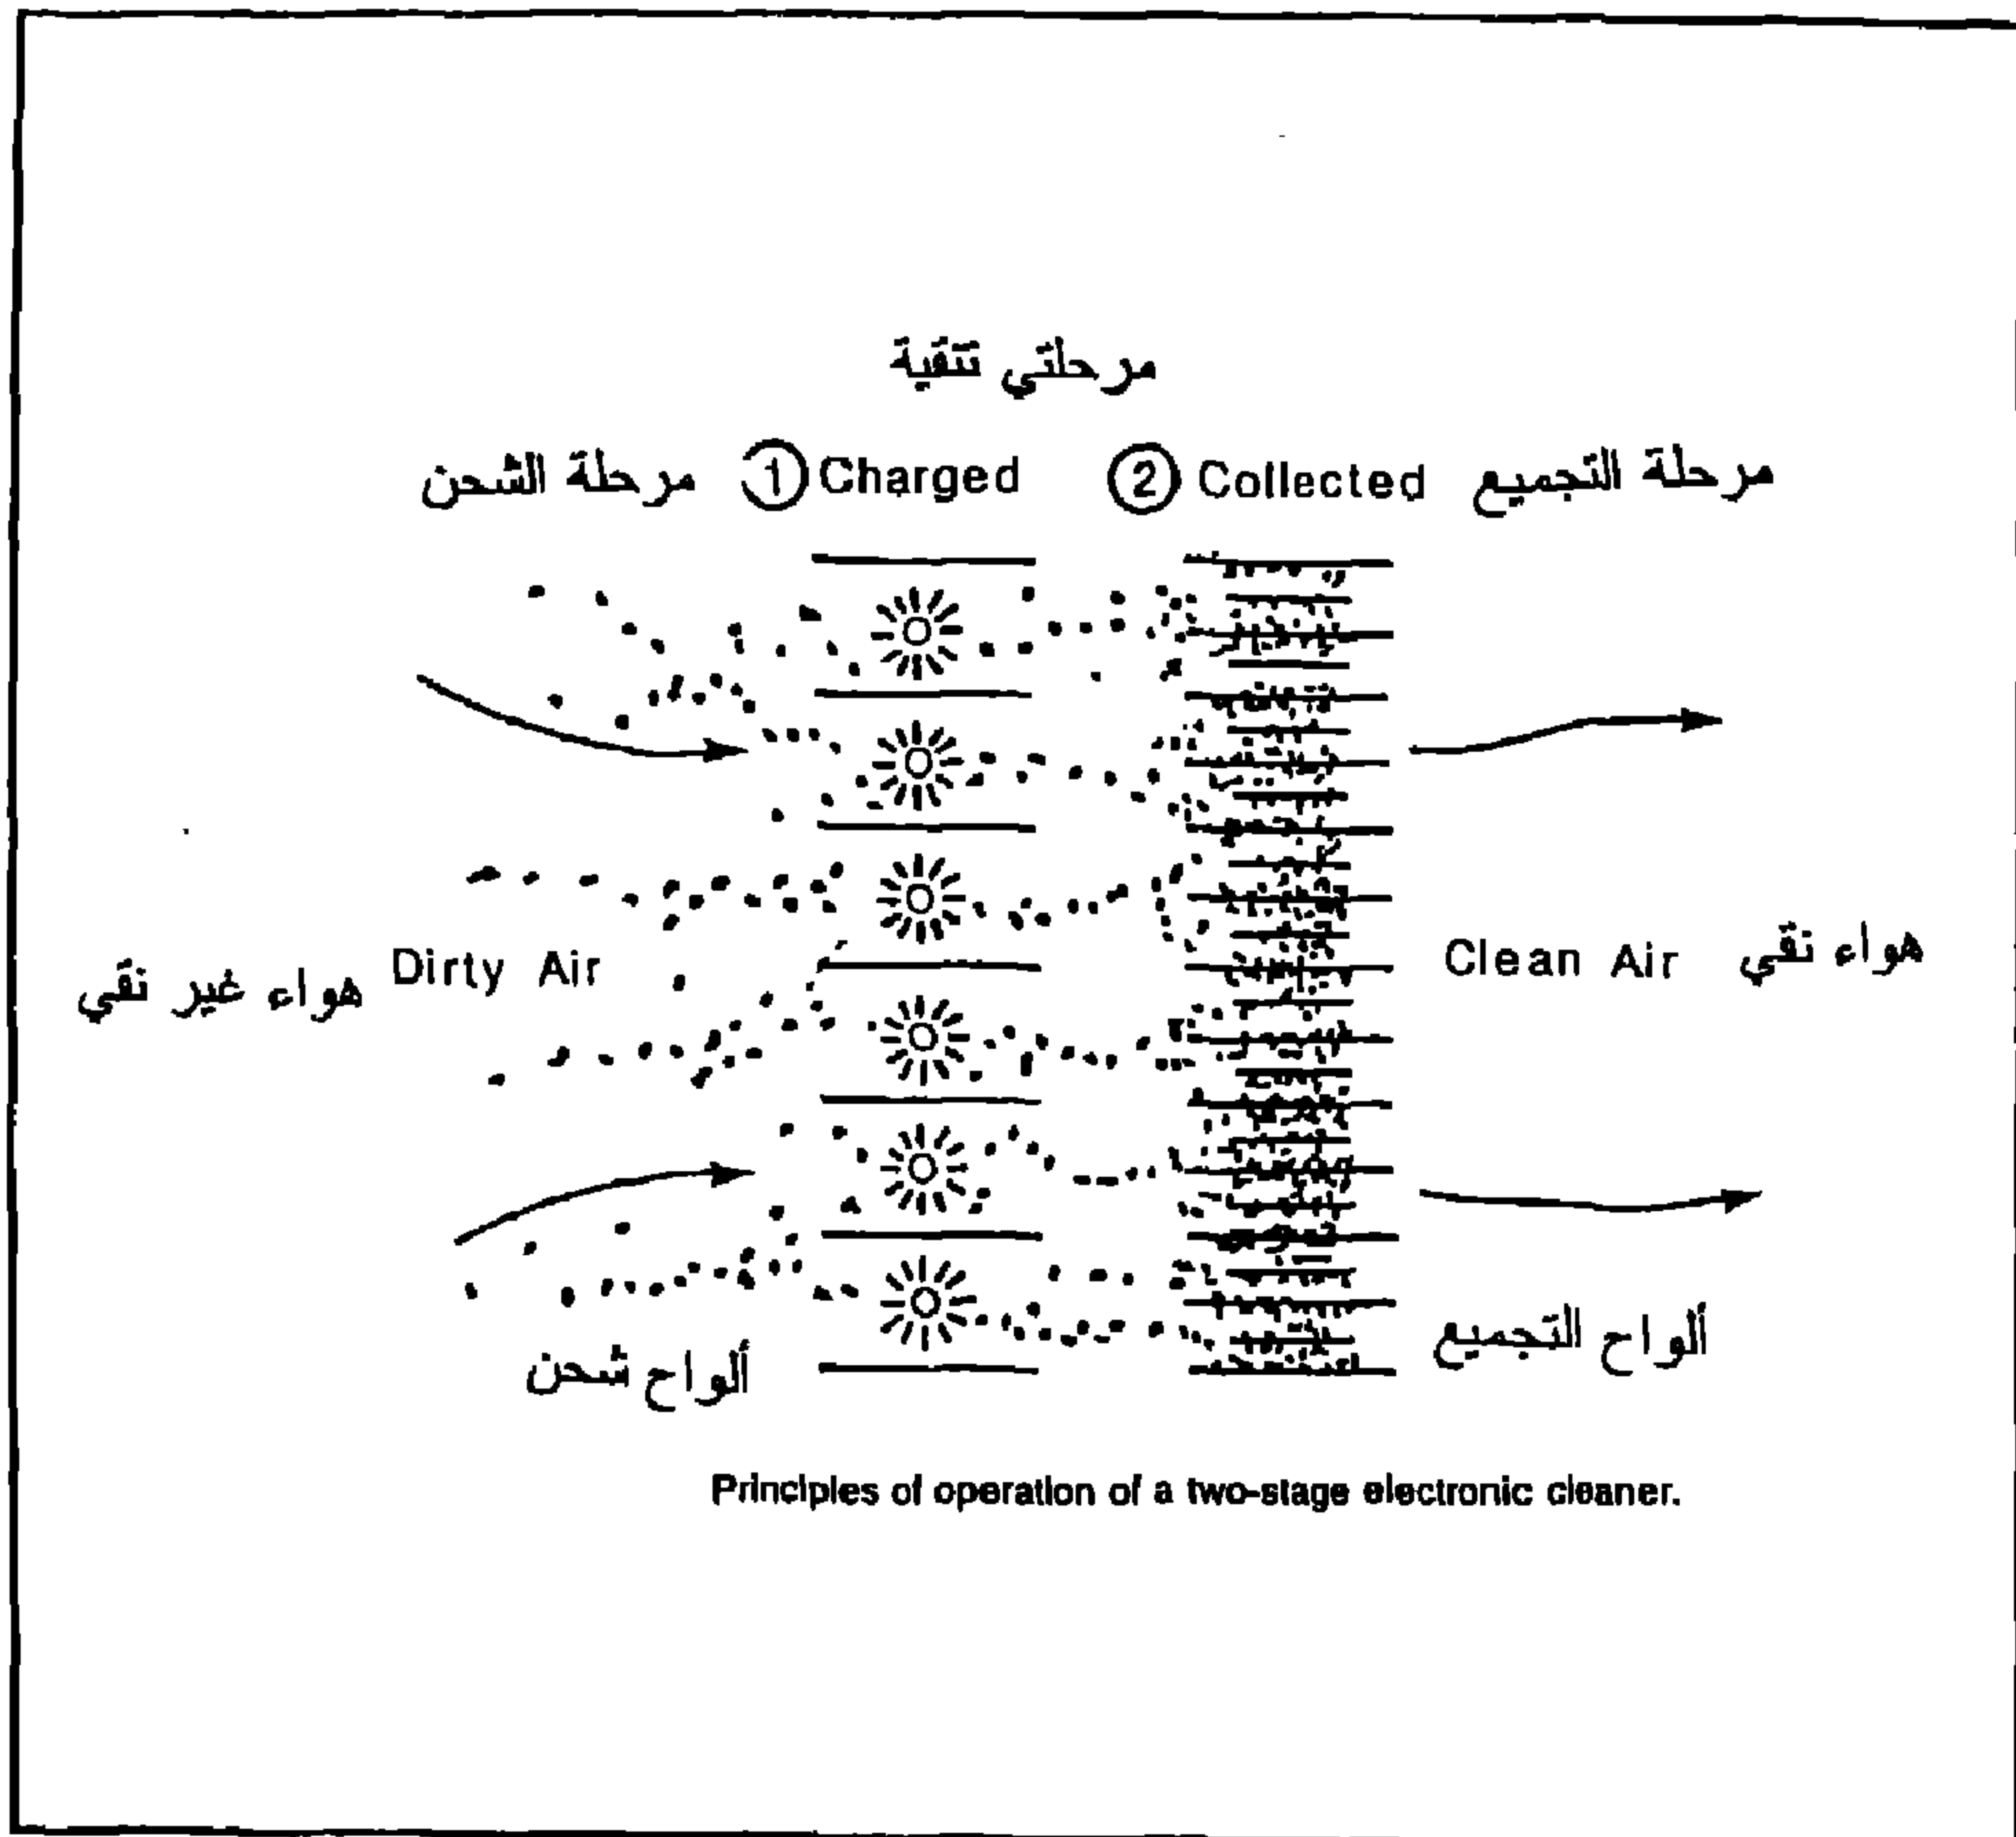 مرحلتي تنقية
مرحلة الشحن 1 Charged 2 Collected مرحلة التجميع
هواء غير نقي Dirty Air Clean Air هواء نقي
ألواح شحن ألواح التجميع
Principles of operation of a two-stage electronic cleaner.